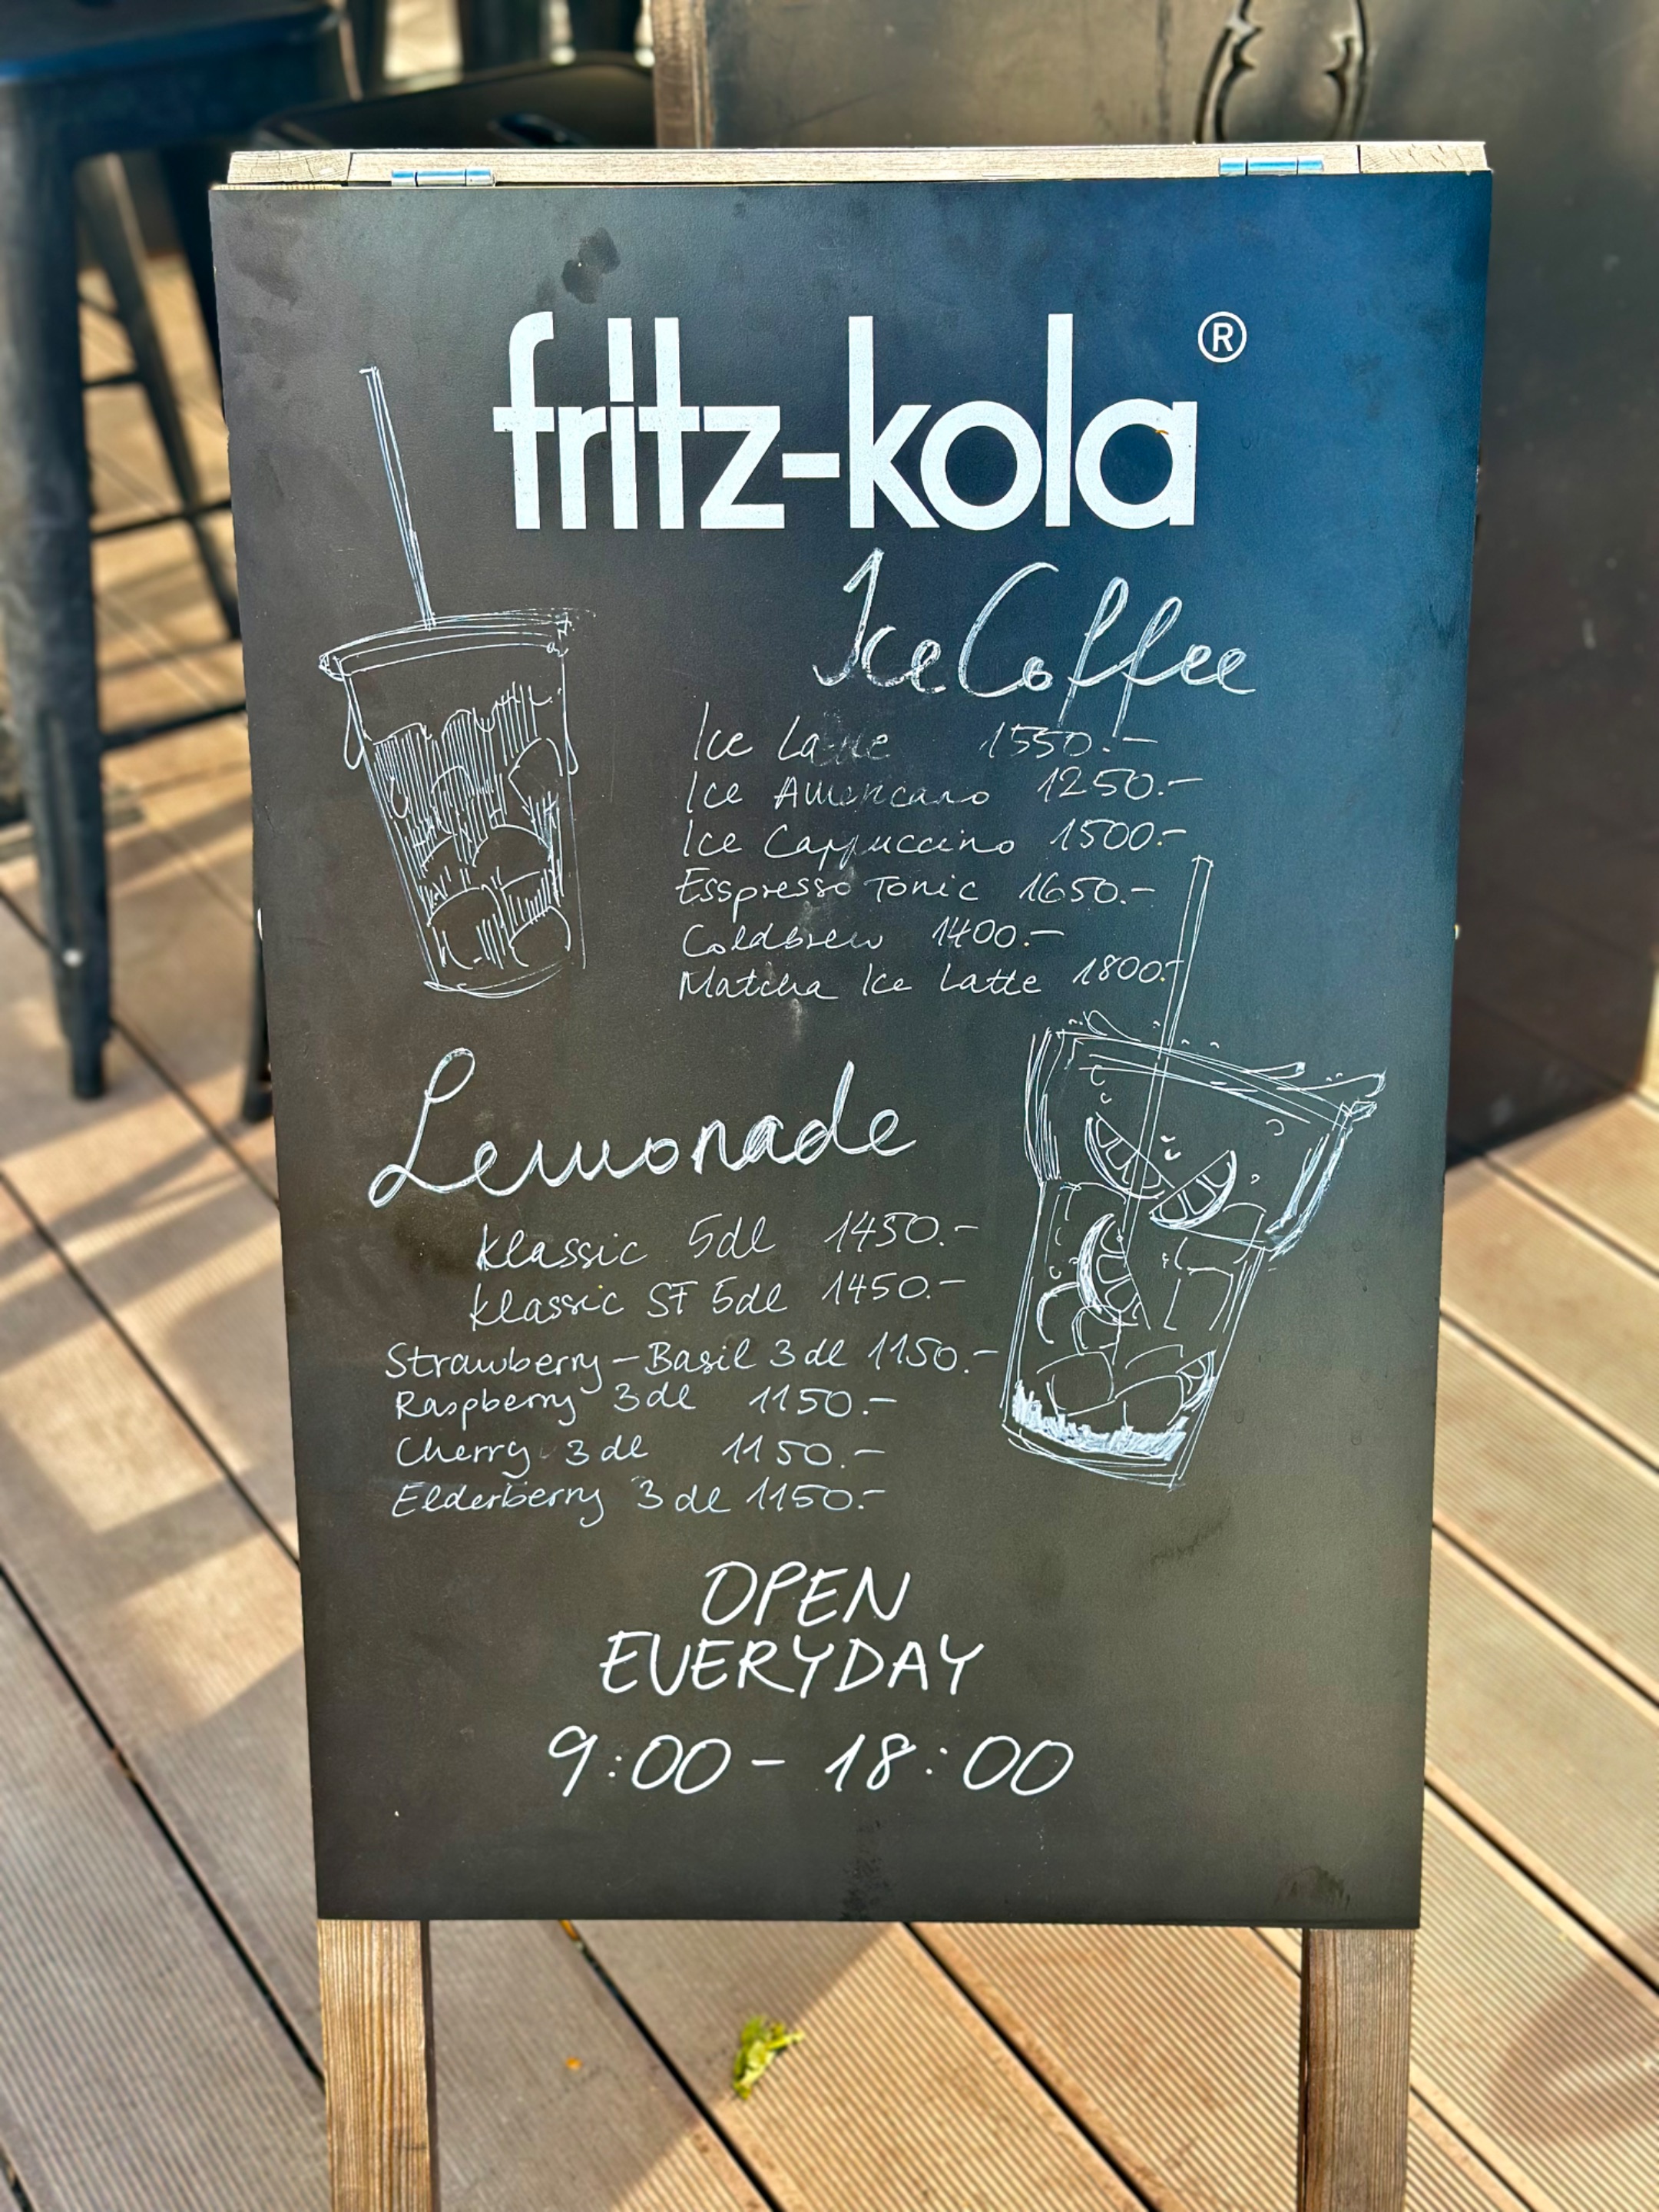 fritz-kola®
Ice Coffee
Ice Latte 1550.-
Ice Americano 1250.-
Ice Cappuccino 1500.-
Esspresso Tonic 1650.-
Coldbrew 1400.-
Matcha Ice Latte 1800.-
Lemonade
klassic 5dl 1450.-
klassic SF 5dl 1450.-
Strawberry-Basil 3dl 1150.-
Raspberry 3dl 1150.-
Cherry 3dl 1150.-
Elderberry 3dl 1150.-
OPEN
EVERYDAY
9:00 - 18:00